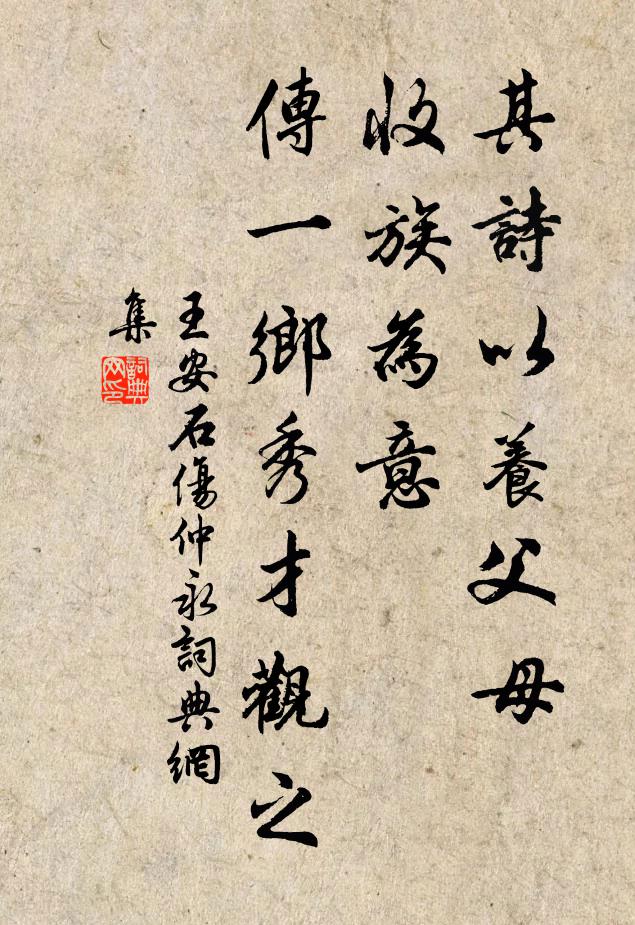 其詩以養父母
收族為意
傳一鄉秀才觀之
王安石傷仲永詞典網
集
詞典
網印